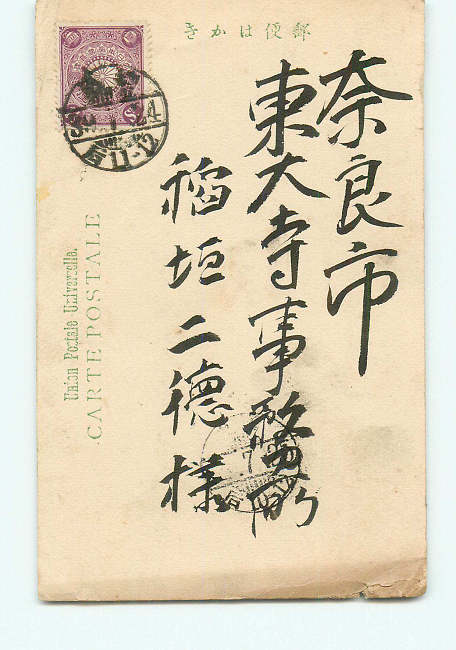 郵便はかき
奈良市
東大寺事務所
稲垣二徳様
Union Postale Universelle.
CARTE POSTALE